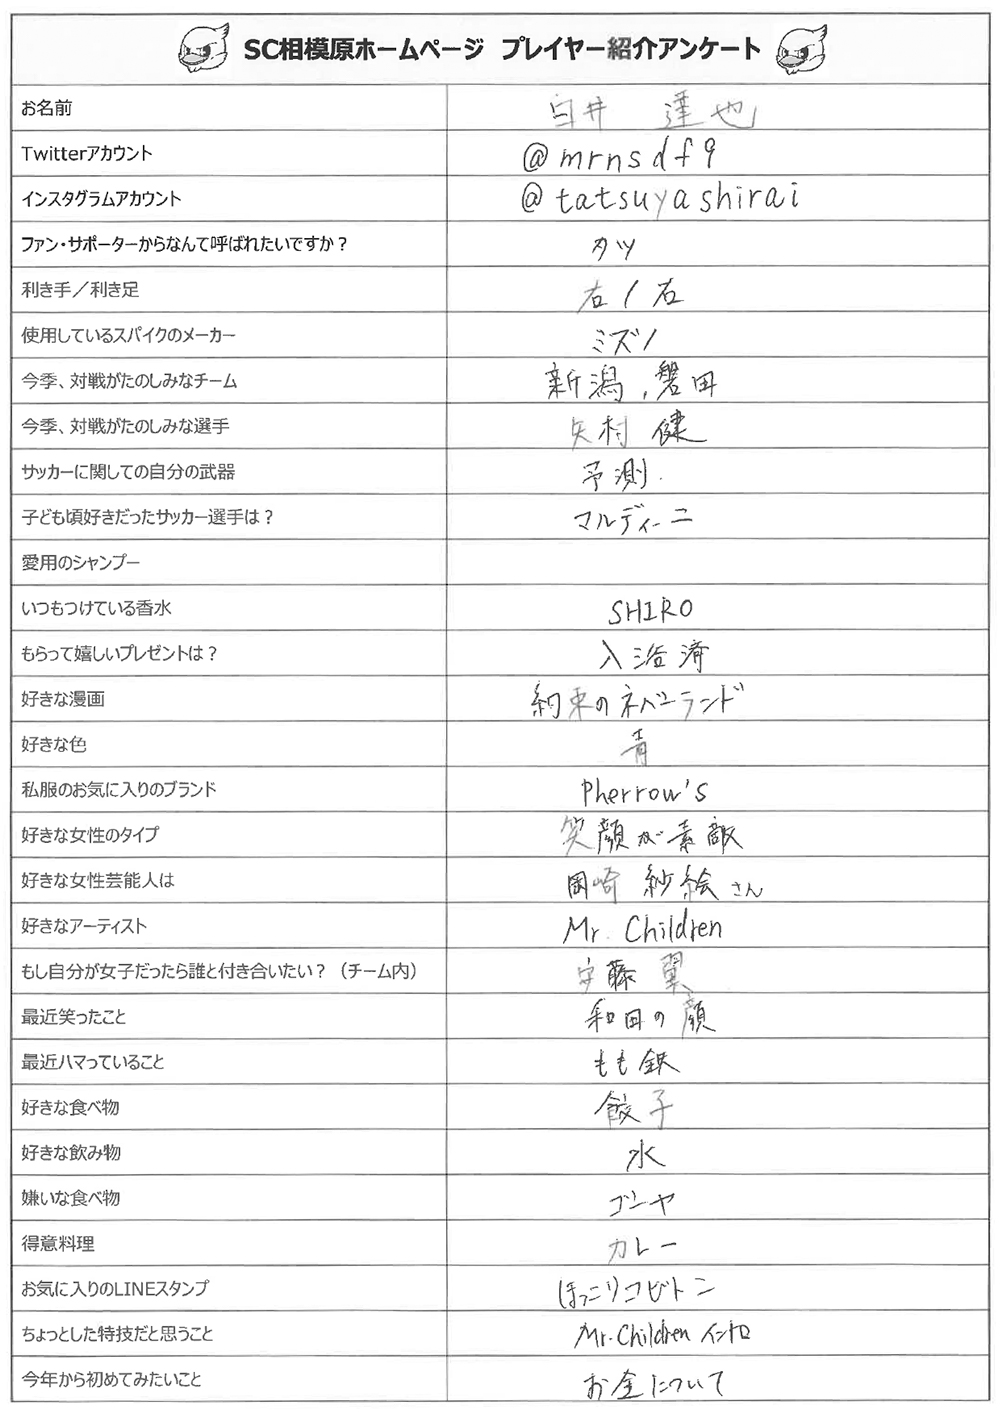 SC相模原ホームページ プレイヤー紹介アンケート
お名前 白井 達也
Twitterアカウント @mrnsdf9
インスタグラムアカウント @tatsuyashirai
ファン・サポーターからなんて呼ばれたいですか？ タツ
利き手／利き足 右/右
使用しているスパイクのメーカー ミズノ
今季、対戦がたのしみなチーム 新潟,磐田
今季、対戦がたのしみな選手 矢村 健
サッカーに関しての自分の武器 予測.
子ども頃好きだったサッカー選手は？ マルディーニ
愛用のシャンプー
いつもつけている香水 SHIRO
もらって嬉しいプレゼントは？ 入浴済
好きな漫画 約束のネバーランド
好きな色 青
私服のお気に入りのブランド Pherrow's
好きな女性のタイプ 笑顔が素敵
好きな女性芸能人は 岡崎 紗絵さん
好きなアーティスト Mr. Children
もし自分が女子だったら誰と付き合いたい？（チーム内） 安藤 翼
最近笑ったこと 和田の顔
最近ハマっていること もも鉄
好きな食べ物 餃子
好きな飲み物 水
嫌いな食べ物 ゴーヤ
得意料理 カレー
お気に入りのLINEスタンプ ほっこりコビトン
ちょっとした特技だと思うこと Mr.Children イントロ
今年から初めてみたいこと お金について